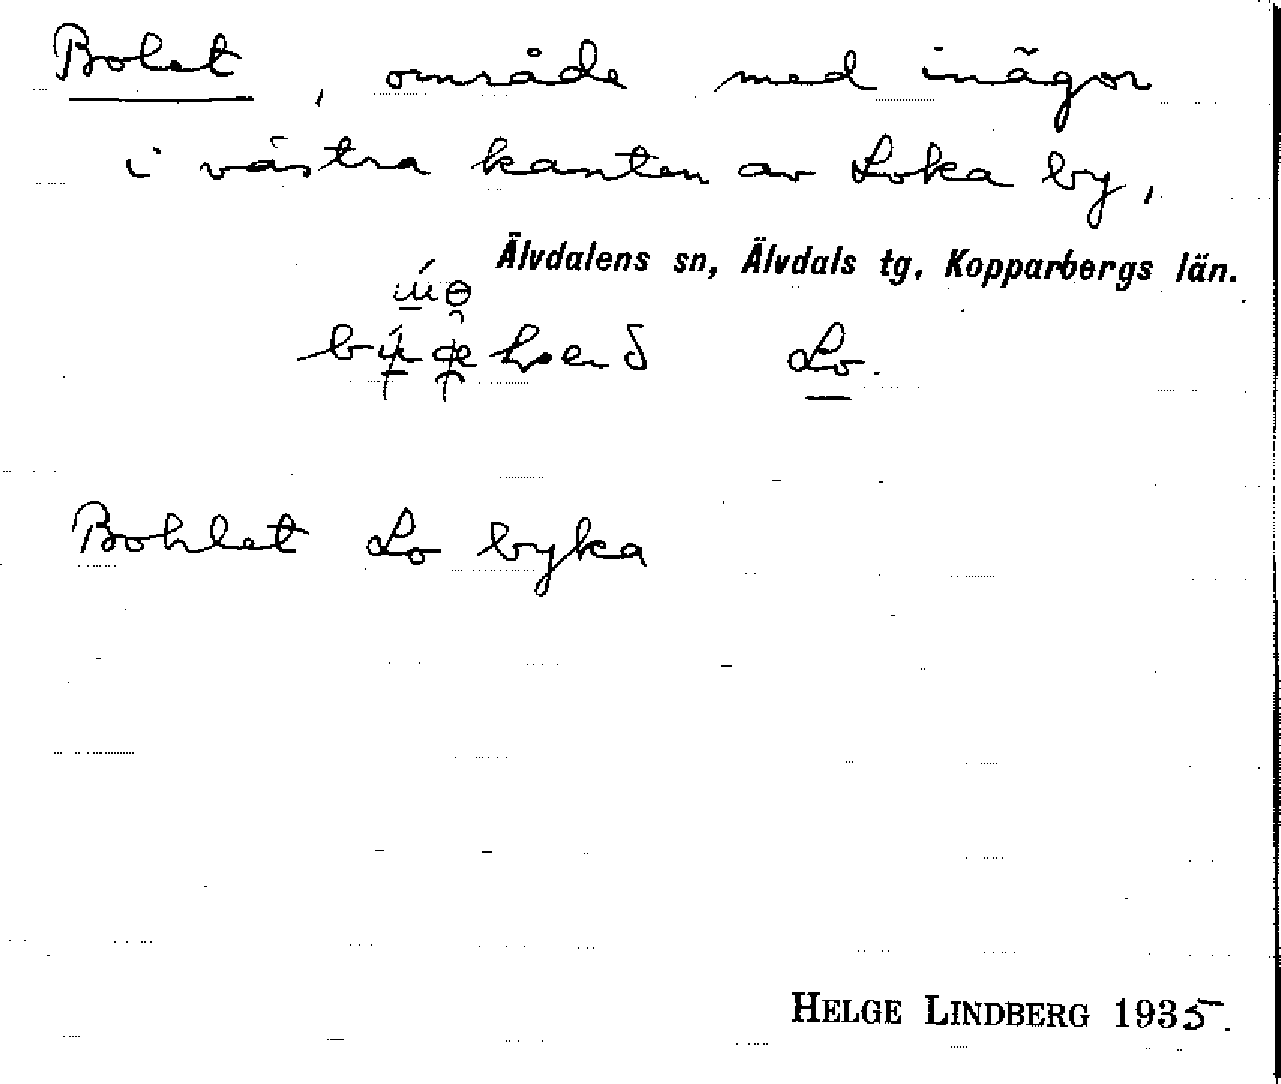 Bolet, område med inägor
i västra kanten av Loka by,
Älvdalens sn, Älvdals tg, Kopparbergs län.
Lo.
Bohlet Lo byka
HELGE LINDBERG 1935.